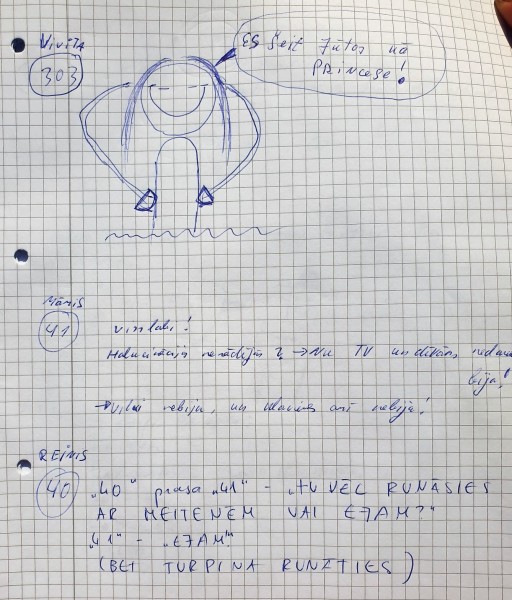 VIVITA
303
ES ŠEIT JŪTOS KĀ
PRINCESE!
MĀRIS
41
viss labi!
Halucinācijas nerādījās? → Nu TV un dīvāns, nedaudz
bija!
→ Vilki nebija, un klavieres arī nebija!
REINIS
40
„40" prasa „41" - „TU VĒL RUNĀSIES
AR MEITENĒM VAI EJAM?"
„41" - „EJAM"
(BET TURPINA RUNĀTIES)